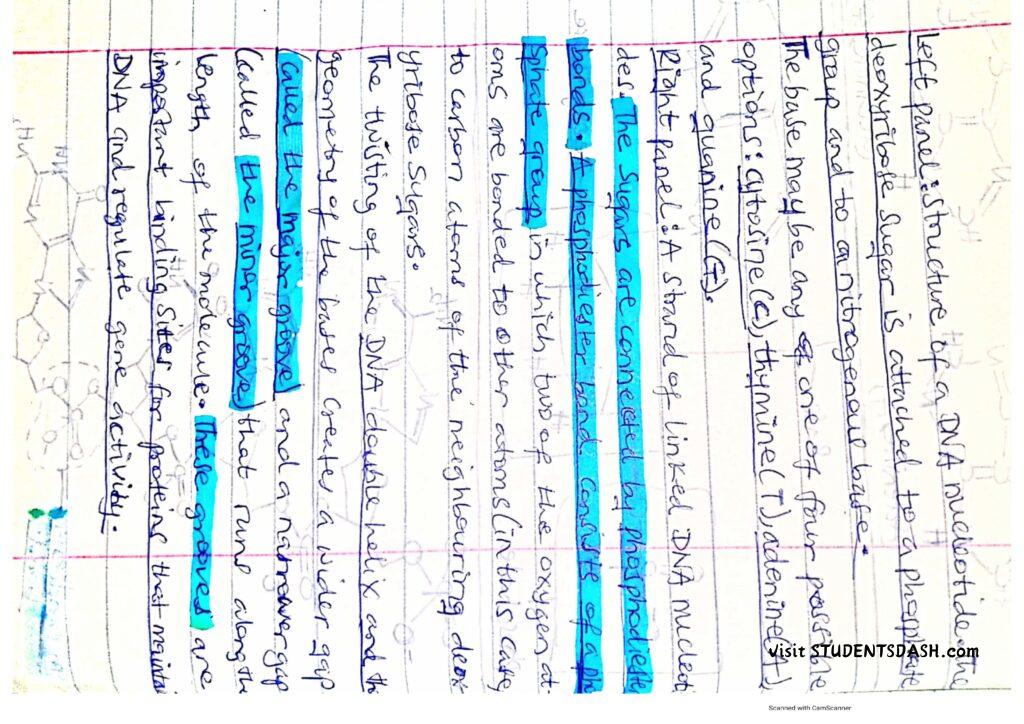 Left panel: structure of a DNA nucleotide. The
deoxyribose sugar is attached to a phosphate
group and to a nitrogenous base.
The base may be any of one of four possible
options: cytosine(C), thymine(T), adenine(A),
and guanine(G).
Right panel: A strand of linked DNA nucleoti
des. The sugars are connected by phosphodiester
bonds. A phosphodiester bond consists of a pho
sphate group in which two of the oxygen at-
oms are bonded to other atoms (in this case,
to carbon atoms of the neighbouring deox
yribose sugars.
The twisting of the DNA double helix and th
geometry of the bases creates a wider gap
(called the major groove) and a narrower gap
(called the minor groove) that runs along the
length of the molecule. These grooves are
important binding sites for proteins that maintai
DNA and regulate gene activity.
visit STUDENTSDASH.com
Scanned with CamScanner